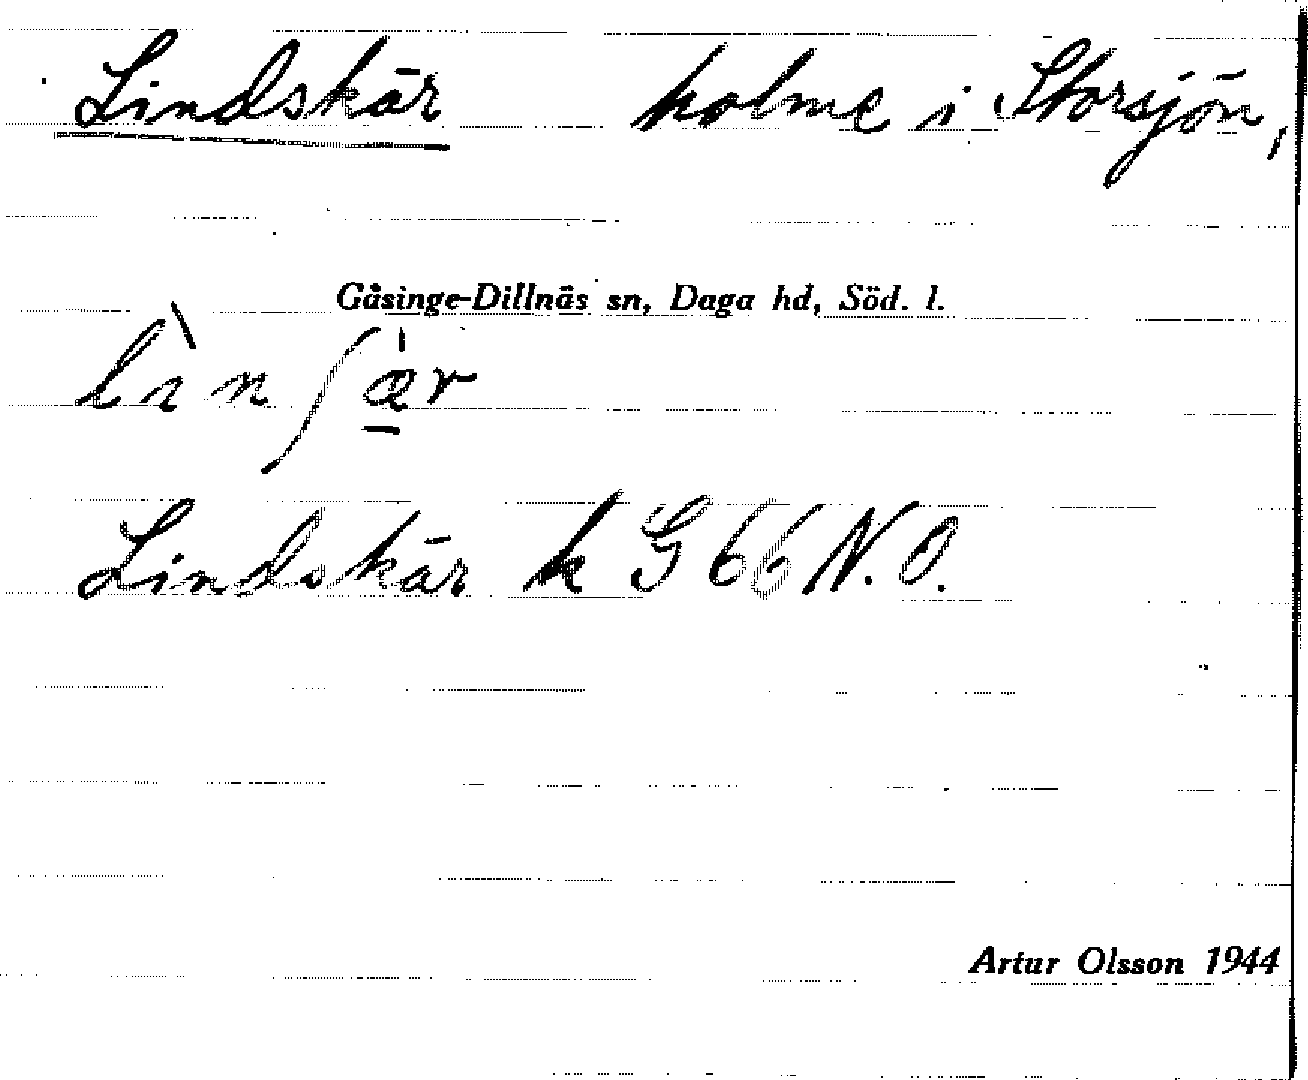 Lindskär holme i Storsjön,
Gåsinge-Dillnäs sn, Daga hd, Söd. l.
Lindskär k G 66 N.O.
Artur Olsson 1944